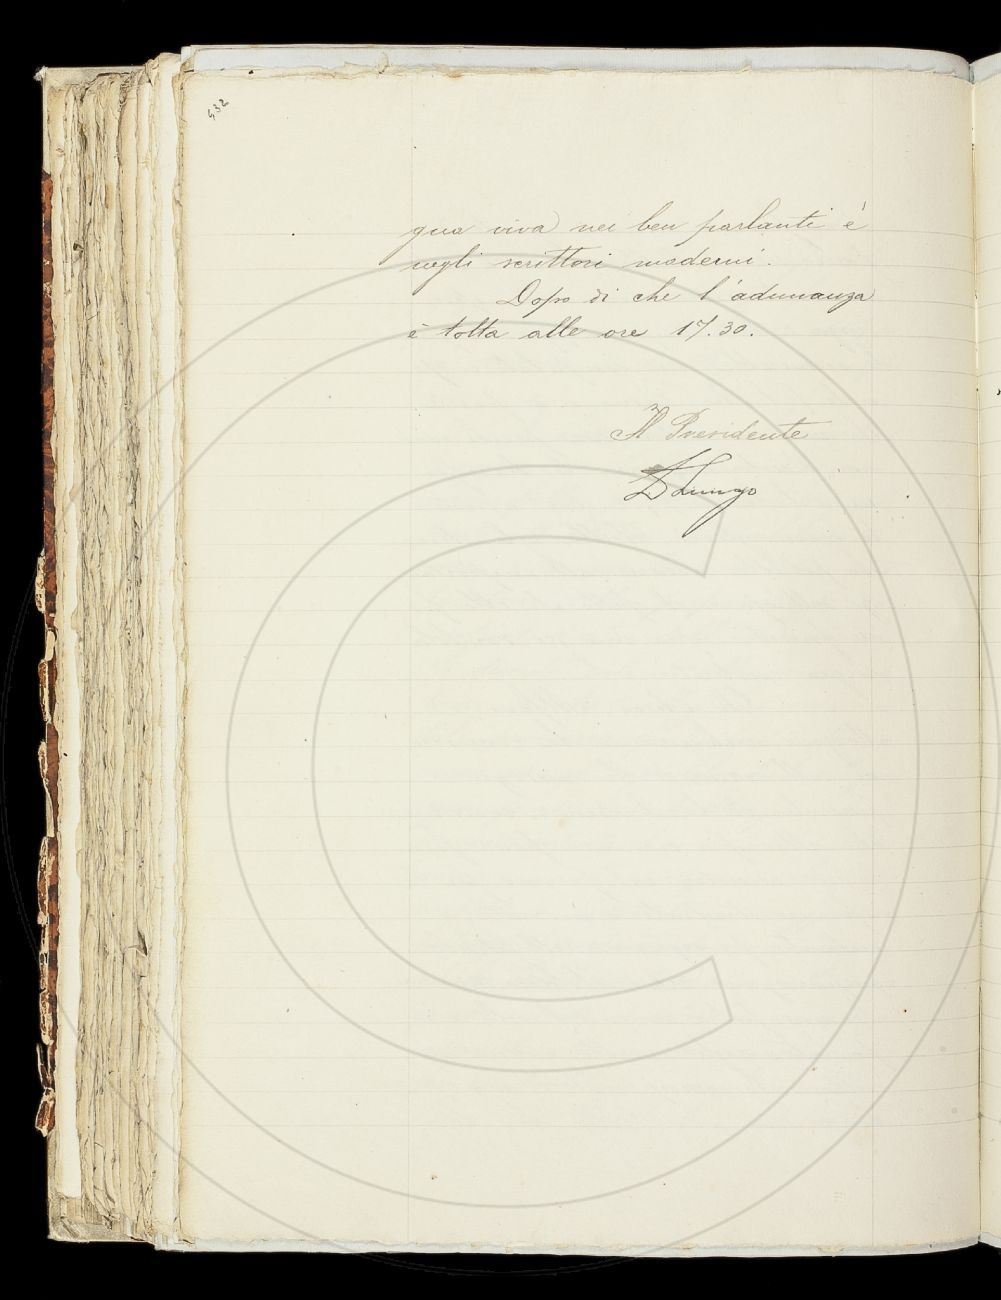 432
gua viva nei ben parlanti e
negli scrittori moderni.
Dopo di che l'adunanza
è tolta alle ore 17.30.
Il Presidente
D Lungo